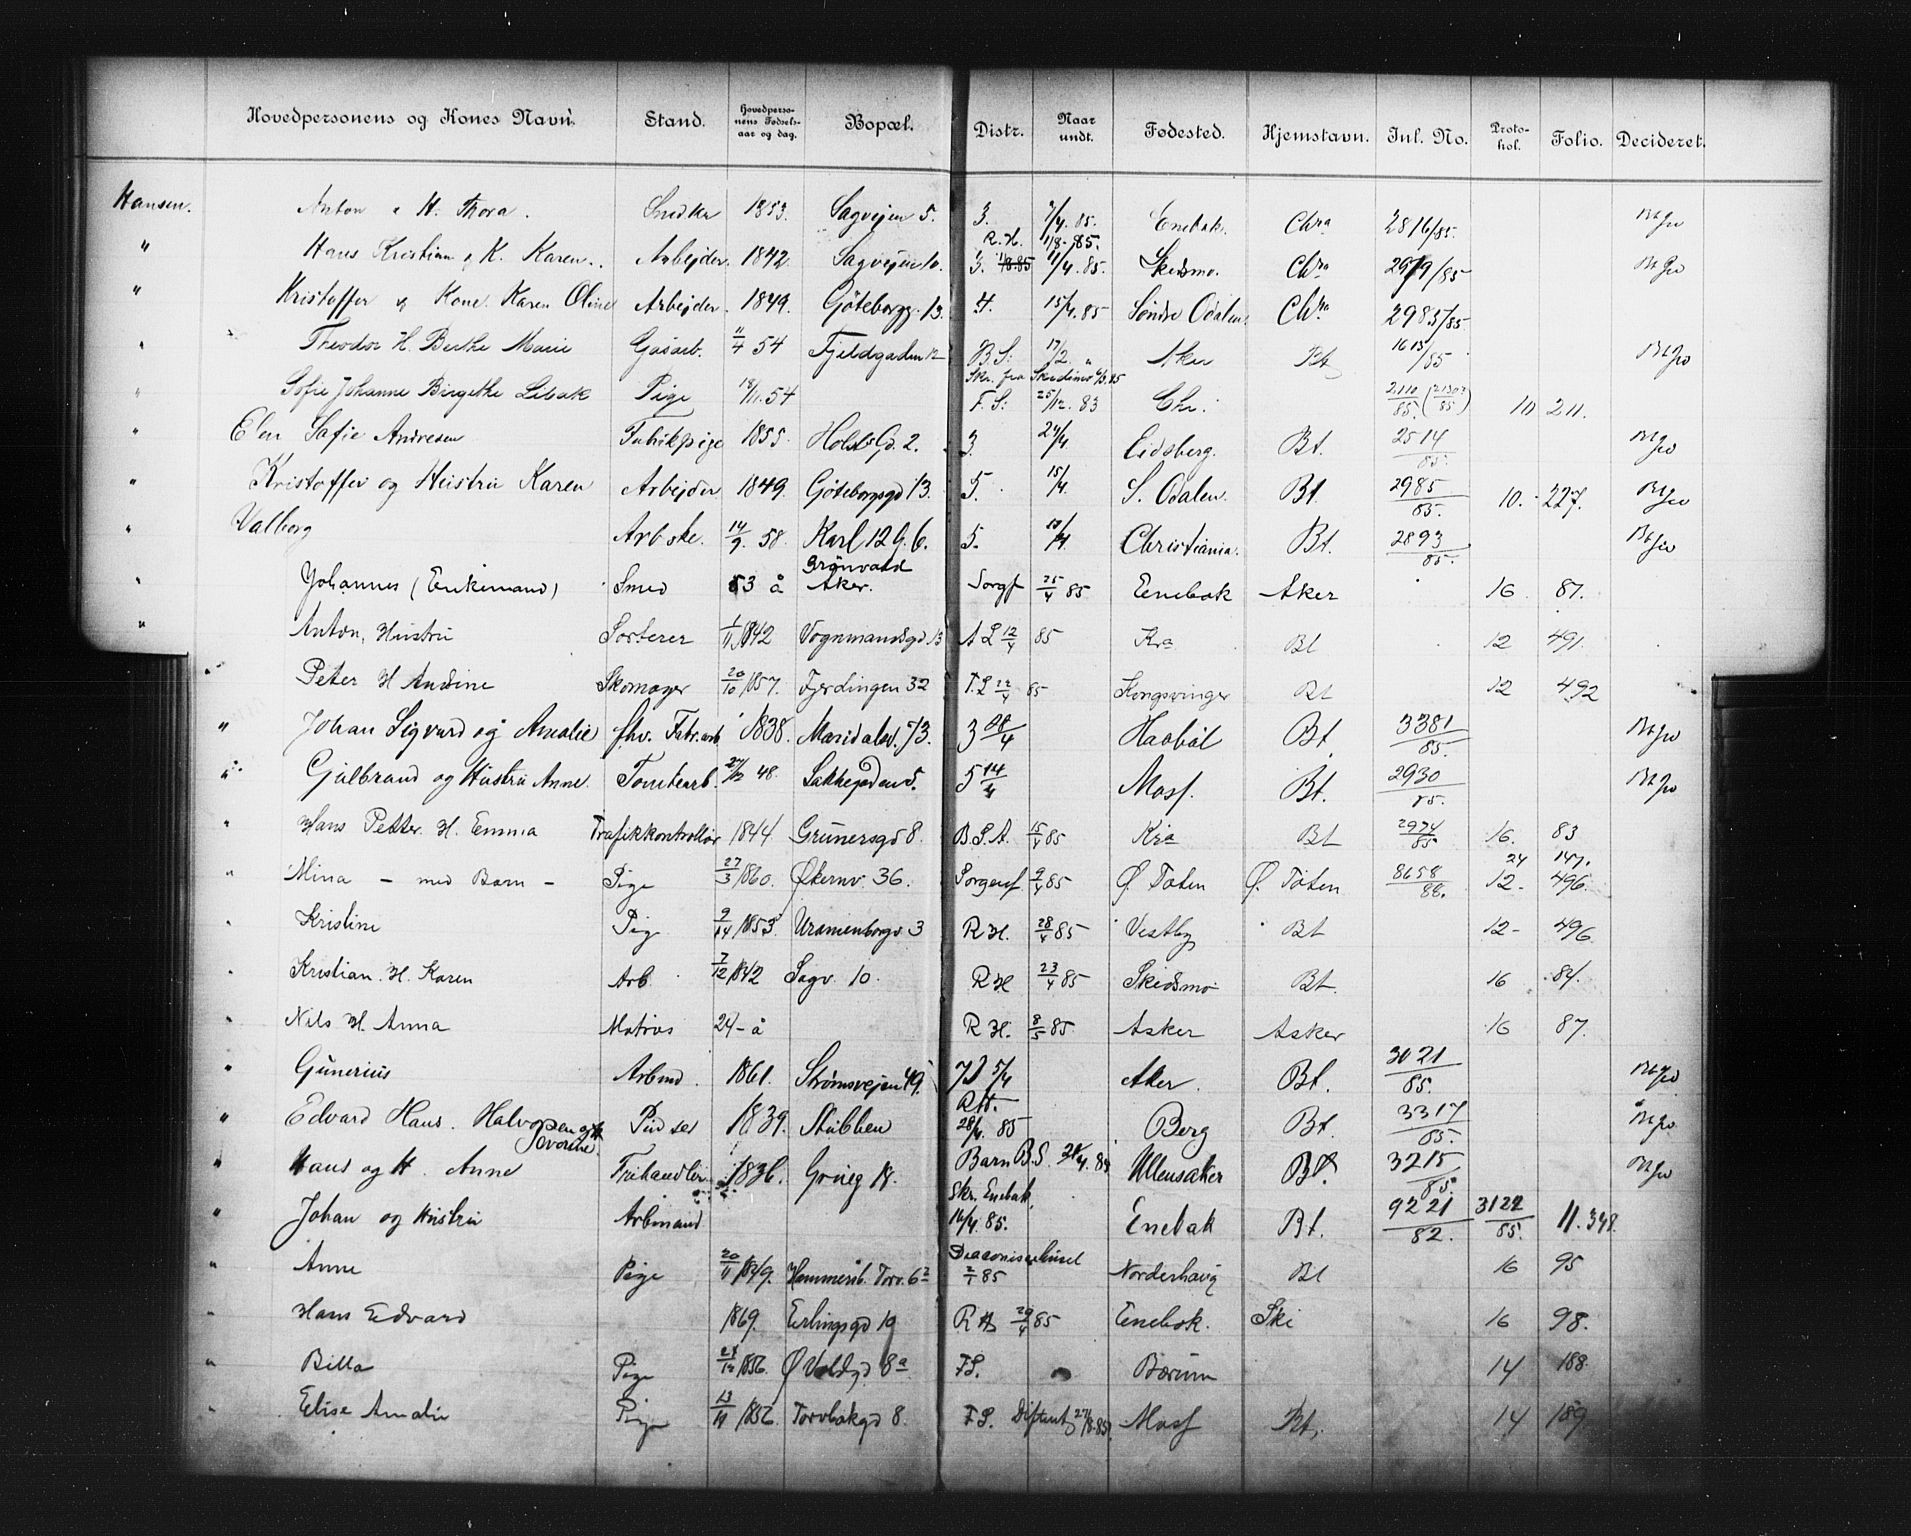 Hovedpersonens og Kones Navn. Stand. Hovedpersonens Fødselsaar og dag. Bopæl. Distr. Naar undt. Fødested. Hjemstavn. Jnl. No. Protokol. Folio. Decideret.
Hansen. Anton & H. Thora. Snedker 1853. Sagvejen 5. 3. 7/4. 85. Enebak. Chra 2816/85.
" Hans Kristian & K. Karen. Arbejder. 1842. Sagvejen 10. R. H. 1/8-85. 3. 11/4. 85. Skedsmo. Chra 2919/85
" Kristoffer & Kone. Karen Oline Arbejder. 1849. Göteborgg. 13. 4. 15/4. 85 Söndre Odalen. Chra 2985/85
" Theodor H. Berthe Marie Gasarb. 11/4 54 Fjeldgaden 12 B S: 17/2. " Aker Bt 1615/85
" Sofie Johanne Birgithe Libak Pige 18/11. 54 Skr. fra Skedsmo 4/3. 85 F. S: 25/12. 83 Chr. 2110/85. (2303/85) 10 211.
" Elen Sofie Andresen Fabrikpige 1855. Holsts Gd. 2. 3. 24/4 Eidsberg. Bt. 2514/85.
" Kristoffer og Hustru Karen Arbejder 1849. Göteborggd 13. 5. 15/4. S. Odalen. Bt. 2985/85. 10. 227.
" Valborg Arbske. 14/9. 58. Karl 12 G. 6. 5. 10/4. Christiania. Bt. 2893/85.
" Johannes (Enkemand) Smed 53 å Grönvold Aker. Sorgf 25/4 85 Enebak Aker 16 87.
" Anton, Hustru Sorterer 1/11 1842 Vognmandsgd 13 A L 12/4 85 Kra Bt 12 491.
Peter H Andine Skomager 20/10 1857. Fjerdingen 32 F. L 22/4 85 Kongsvinger Bt 12 492
" Johan Sigvard og Amalie fhv. Fabr. arb. 1838. Maridalsv. 73. 3 28/4 Haabøl Bt. 3381/85.
" Gulbrand og Hustru Anne. Tomtearb. 48. Lakkegaden 5. 5 14/4 Moss. Bt. 2930/85.
" Hans Petter. H. Emma Trafikkontrollör 1844 Grünersgd 8. B. S. A. 15/4 85 Kra Bt 2974/85 16. 83
" Mina - med Barn - Pige 27/3 1860. Økernv. 36. Sorgenf 9/4 85 Ø. Toten Ø. Toten 8658/88. 24 147. 12- 496.
" Kristine Pige 9/4 1853. Uranienborgv 3 R H. 28/4 85 Vestby Bt 12- 496
" Kristian. H. Karen Arb. 7/12 1842 Sagv. 10. R H 23/4 85 Skedsmo Bt. 16 84.
" Nils H Anna Matros 24-å R H. 8/5 85. Asker Asker 16 87.
" Gunerius Arbmd. 1861. Strømsvejen 49. 7 5/4 Aker. Bt. 3021/85.
" Edvard Hans. Halvorsen og H. 1839. Stubben RH. 28/4. 85 Berg Bt. 3317/85.
" Hans og H. Anne Frihandler 1836. Grueg 18. Barn B. S. Ullensaker Bt. 3215/85.
" Johan og Hustru Arbmand Skr. Enebak. 16/4. 85. Enebak Bt. 9221/82. 3122/85. 11. 348.
" Anne Pige 20/11 1849. Hammersb. Torv. 6 2 Diaconissehuset 2/1 85 Norderhaug Bt 16 95
" Hans Edvard 1869. Erlingsgd 19 R H 29/4 85 Enebak. Ski 16 98.
" Billa Pige 1856. Ø Voldgd 8a F S. Bærum 14 188.
" Elise Amalie Pige 13/11 1856. Torvbakgd 8. F S. 27/8. 85. Moss Bt. 14 189.